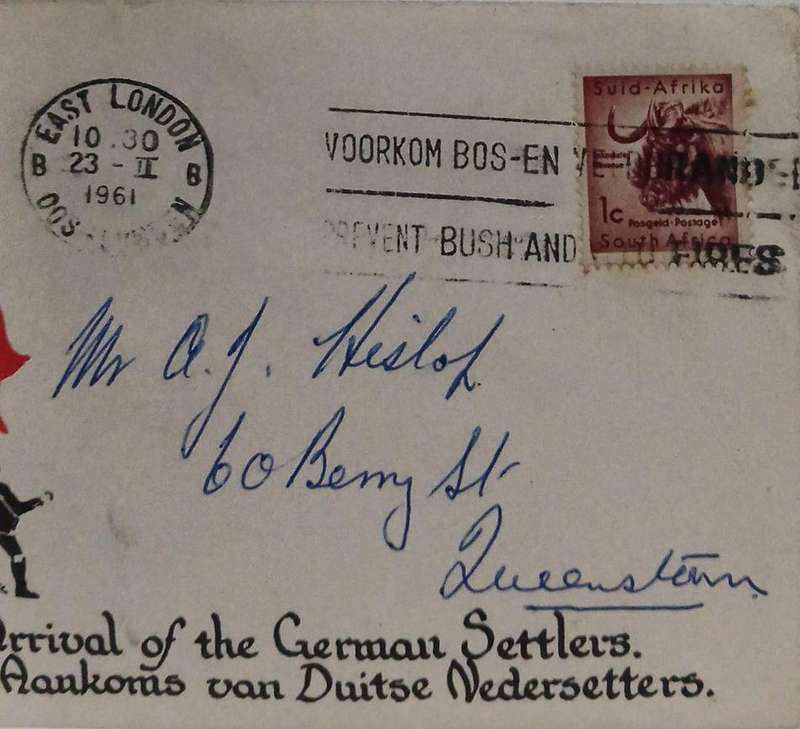 EAST LONDON
10.30
B 23 - II B
1961
OOS
VOORKOM BOS-EN
PREVENT BUSH AND FIRES
Suid-Afrika
1c Posgeld·Postage
South Africa
Mr A. J. Hislop
60 Berry St
Queenstown
Arrival of the German Settlers.
Aankoms van Duitse Nedersetters.